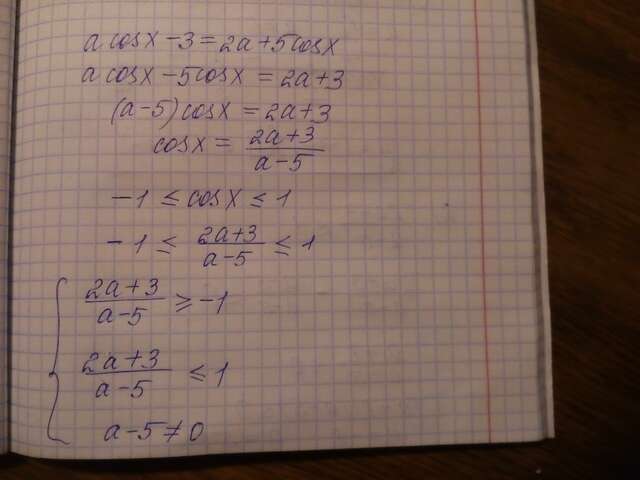 a cosx - 3 = 2a + 5cosx
a cosx - 5cosx = 2a + 3
(a - 5) cosx = 2a + 3
cosx = (2a + 3)/(a - 5)
-1 ≤ cosx ≤ 1
-1 ≤ (2a + 3)/(a - 5) ≤ 1
{ (2a + 3)/(a - 5) ≥ -1
(2a + 3)/(a - 5) ≤ 1
a - 5 ≠ 0